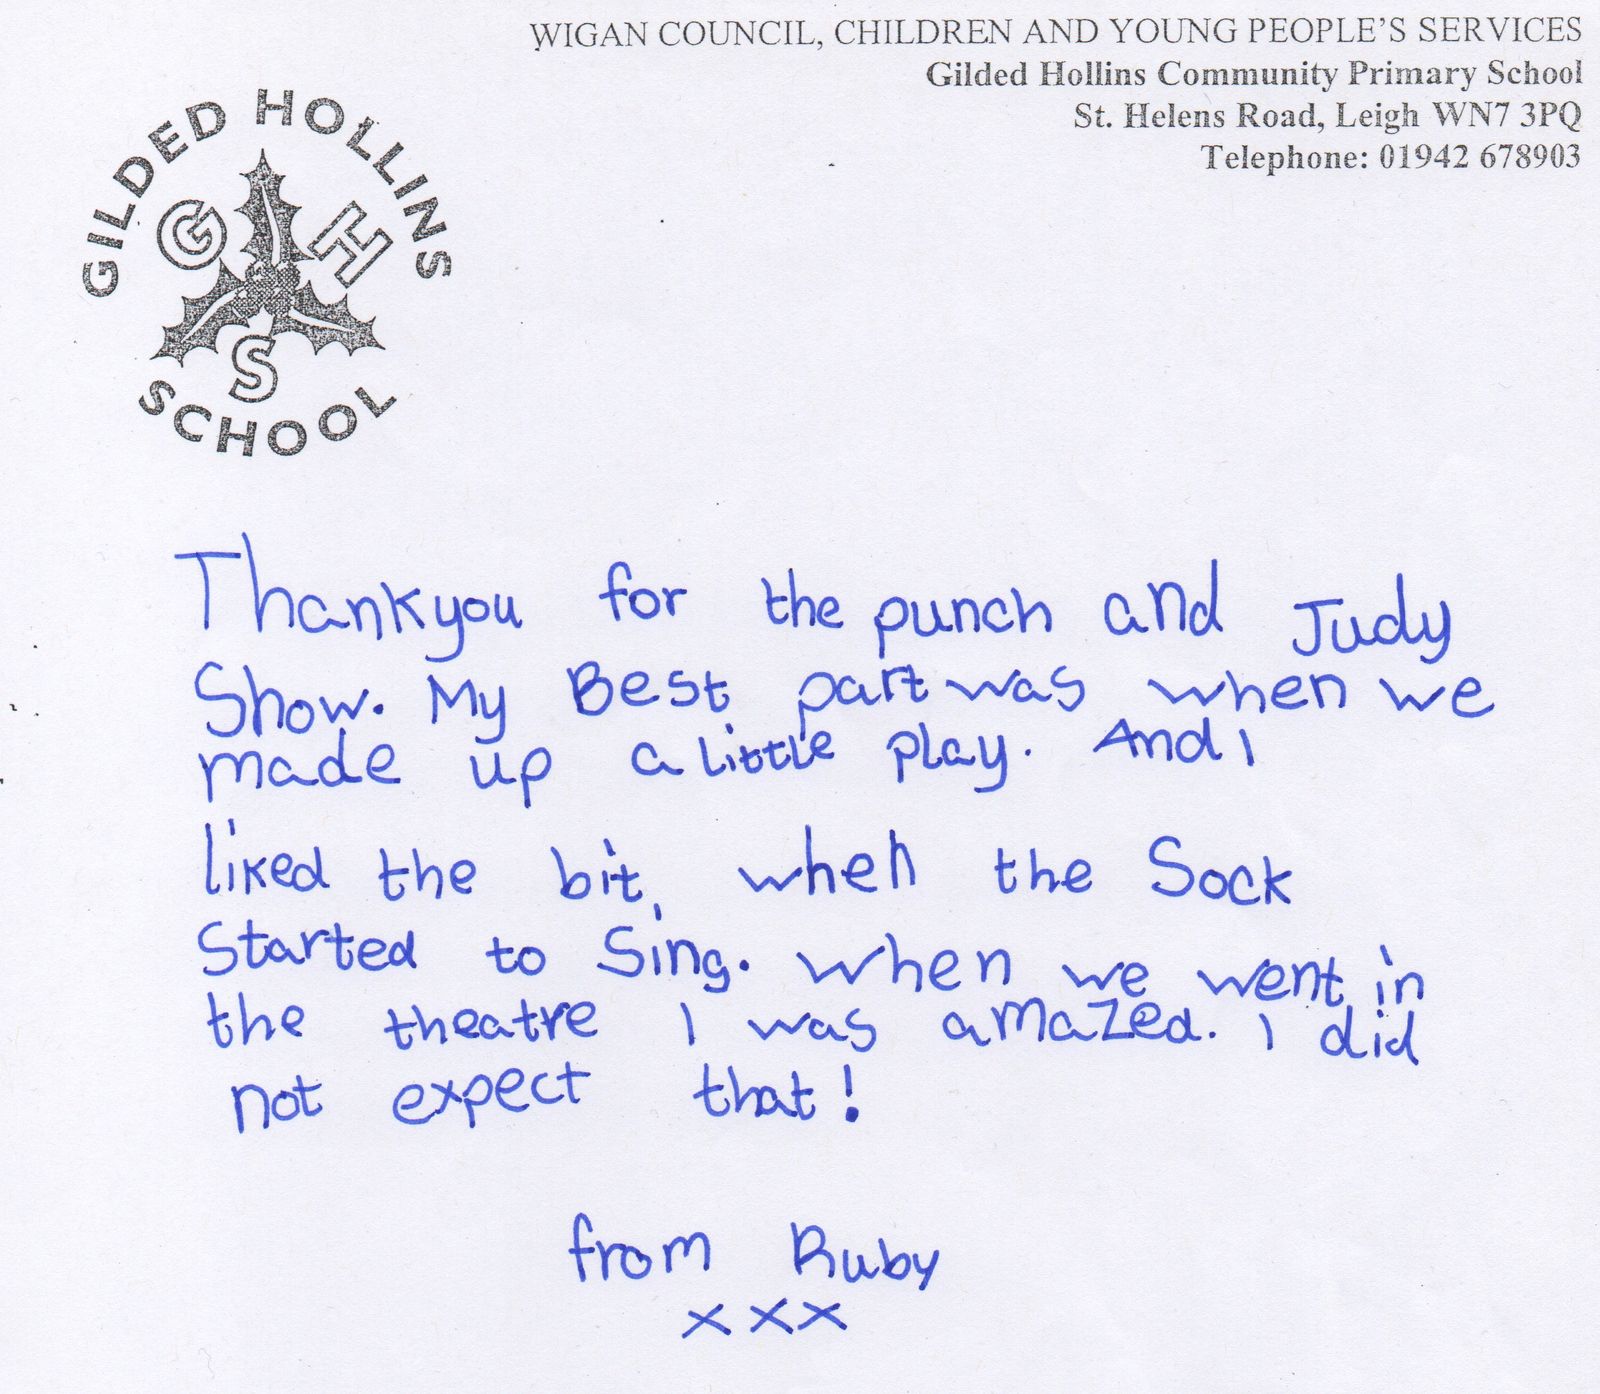 WIGAN COUNCIL, CHILDREN AND YOUNG PEOPLE'S SERVICES
Gilded Hollins Community Primary School
St. Helens Road, Leigh WN7 3PQ
Telephone: 01942 678903
GILDED HOLLINS
G H
S
SCHOOL
Thankyou for the punch and Judy
Show. My Best part was when we
made up a little play. And I
liked the bit, when the Sock
Started to Sing. When we went in
the theatre I was amazed. I did
not expect that!
from Ruby
xxx